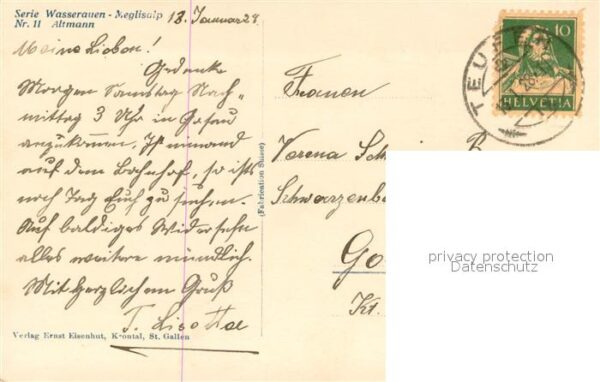 Serie Wasserauen - Meglisalp
Nr. 11 Altmann
13. Januar 28
Meine Lieben!
Gedenke
Morgen Samstag Nach-
mittag 3 Uhr in Gossau
anzukommen. Ist niemand
auf dem Bahnhof, so ists
noch Tag Euch zu suchen.
Auf baldiges Wiedersehn
alles weitere mündlich.
Mit herzlichem Gruß
T. Lisette
Verlag Ernst Eisenhut, Krontal, St. Gallen
(Fabrication Suisse)
10
HELVETIA
TEUFEN
28
Frauen
Verena Sch
Schwarzenb
Go
Kt.
privacy protection
Datenschutz